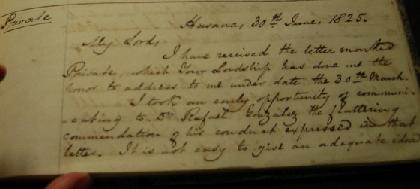 Private
Havana, 30th June, 1825.
My Lord,
I have received the letter marked
Private, which Your Lordship has done me the
honor to address to me under date the 30th March.
I took an early opportunity of communi-
-cating to Dn Rafael Gonzalez the flattering
commendation of his conduct expressed in that
letter. It is not easy to give an adequate idea